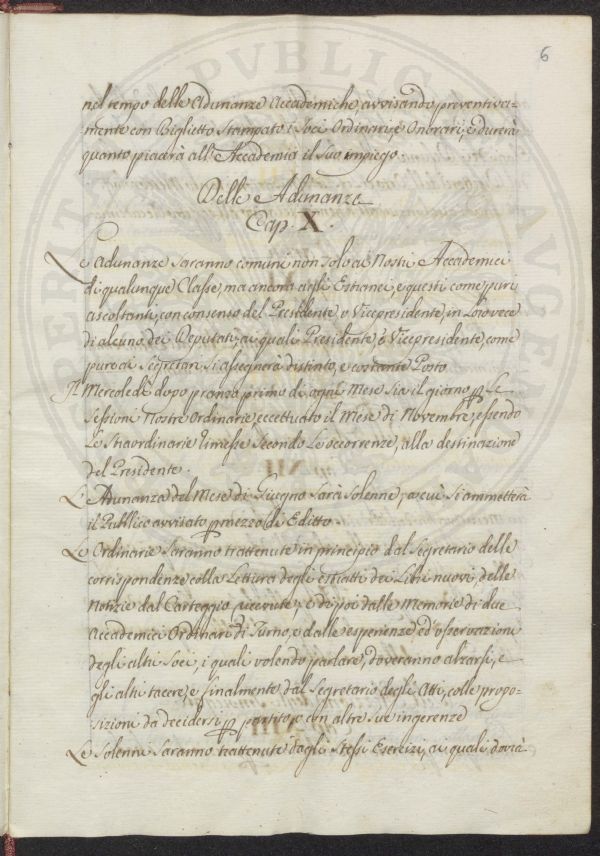 6
nel tempo delle Adunanze Accademiche, avvisando preventiva=
mente con Biglietto stampato i Soci Ordinari, e Onorari, e durerà
quanto piacerà all'Accademia il suo impiego.
Delle Adunanze
Cap. X.
Le Adunanze saranno comuni non solo ai Nostri Accademici
di qualunque Classe, ma ancora agli Estranei, e questi come puri
ascoltanti, con consenso del Presidente o Vicepresidente, in Loro vece
di alcuno dei Deputati, ai quali Presidente, o Vicepresidente, come
pure ai Segretari si assegnerà distinto, e costante Posto
Il Mercoledì dopo pranzo primo di ogni Mese sia il giorno p Le
Sessioni Nostre Ordinarie, eccettuato il Mese di Novembre, essendo
Le Straordinarie rimesse secondo Le occorrenze, alla destinazione
del Presidente.
L'Adunanza del Mese di Giugno sarà solenne, a cui si ammetterà
il Pubblico avvisato p mezzo di Editto
Le Ordinarie saranno trattenute in principio dal Segretario delle
corrispondenze colla Lettura degli estratti dei Libri nuovi, delle
Notizie dal Carteggio ricevute, e di poi dalle Memorie di due
Accademici Ordinari di Turno, e dalle esperienze ed osservazioni
degli altri Soci, i quali volendo parlare, doveranno alzarsi, e
gli altri tacere, e finalmente dal Segretario degli Atti, colle propo=
sizioni da decidersi p partito, e con altre sue ingerenze
Le Solenni saranno trattenute dagli stessi Esercizi, ai quali darà